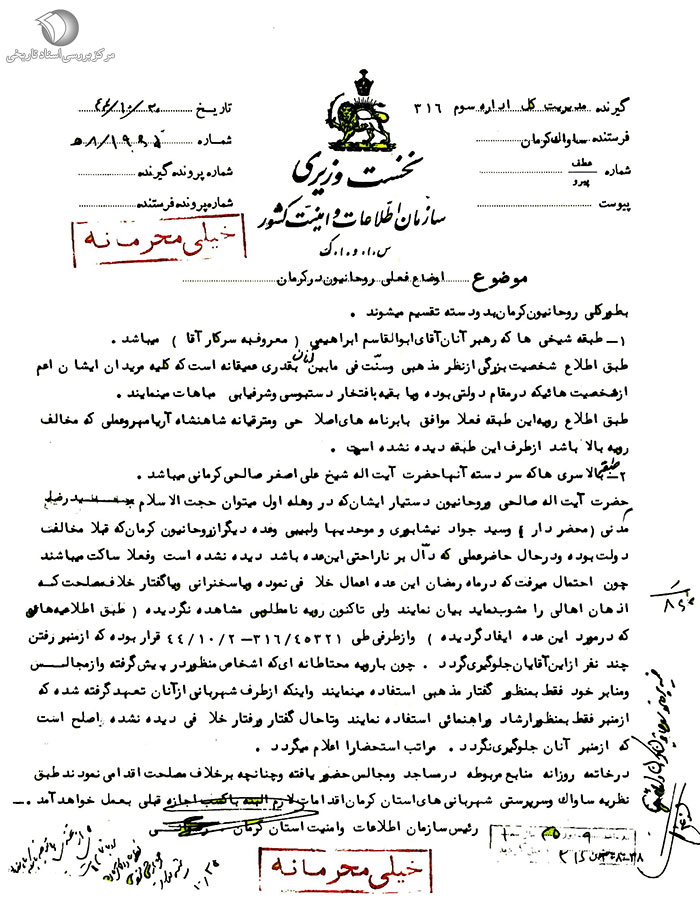 مرکز بررسی اسناد تاریخی
گیرنده مدیریت کل اداره سوم ۳۱۶
فرستنده ساواک کرمان
شماره عطف
پیرو
پیوست
تاریخ ۴۴/۱۰/۳۰
شماره
شماره پرونده گیرنده
شماره پرونده فرستنده
نخست وزیری
سازمان اطلاعات و امنیت کشور
س.ا.و.ا.ک
خیلی محرمانه
موضوع اوضاع فعلی روحانیون در کرمان
بطور کلی روحانیون کرمان بدو دسته تقسیم میشوند .
۱ـ طبقه شیخی ها که رهبر آنان آقای ابوالقاسم ابراهیمی ( معروف به سرکار آقا ) میباشد .
طبق اطلاع شخصیت بزرگی از نظر مذهبی و سنت فی مابین آنان بقدری عمیقانه است که کلیه مریدان ایشان اعم
از شخصیت هائیکه در مقام دولتی بوده و یا بقیه بافتخار دستبوسی و شرفیابی مباهات مینمایند .
طبق اطلاع رویه این طبقه فعلا موافق با برنامه های اصلاحی و مترقیانه شاهنشاه آریامهر و عملی که مخالف
رویه بالا باشد از طرف این طبقه دیده نشده است .
۲ـ طبقه بالاسری ها که سر دسته آنها حضرت آیت اله شیخ علی اصغر صالحی کرمانی میباشد .
حضرت آیت اله صالحی و روحانیون دستیار ایشان که در وهله اول میتوان حجت الاسلام سید رضا
مدنی (محضر دار) و سید جواد نیشابوری و موحدیها ولبیبی وعده دیگر از روحانیون کرمان که قبلا مخالف
دولت بوده و در حال حاضر عملی که دآل بر ناراحتی این عده باشد دیده نشده است وفعلا ساکت میباشند
چون احتمال میرفت که در ماه رمضان این عده اعمال خلافی نموده و یا سخنرانی و یا گفتار خلاف مصلحت که
اذهان اهالی را مشوب نماید بیان نمایند ولی تاکنون رویه نامطلوبی مشاهده نگردیده ( طبق اطلاعیه هائی
که در مورد این عده ایفاد گردیده ) و از طرفی طی ۳۱۶/۴۵۳۲۱ـ ۴۴/۱۰/۲ قرار بوده که از منبر رفتن
چند نفر از این آقایان جلوگیری گردد . چون با رویه محتاطانه ای که اشخاص منظور در پیش گرفته و از مجالس
ومنابر خود فقط بمنظور گفتار مذهبی استفاده مینمایند و اینکه از طرف شهربانی از آنان تعهد گرفته شده که
از منبر فقط بمنظور ارشاد و راهنمائی استفاده نمایند و تا حال گفتار و رفتار خلافی دیده نشده اصلح است
که از منبر آنان جلوگیری نگردد . مراتب استحضارا اعلام میگردد .
در خاتمه روزانه منابع مربوطه در مساجد و مجالس حضور یافته و چنانچه بر خلاف مصلحت اقدامی نمودند طبق
نظریه ساواک و سرپرستی شهربانی های استان کرمان اقدامات لازم البته با کسب اجازه قبلی بعمل خواهد آمد .
رئیس سازمان اطلاعات وامنیت استان کرمان
خیلی محرمانه